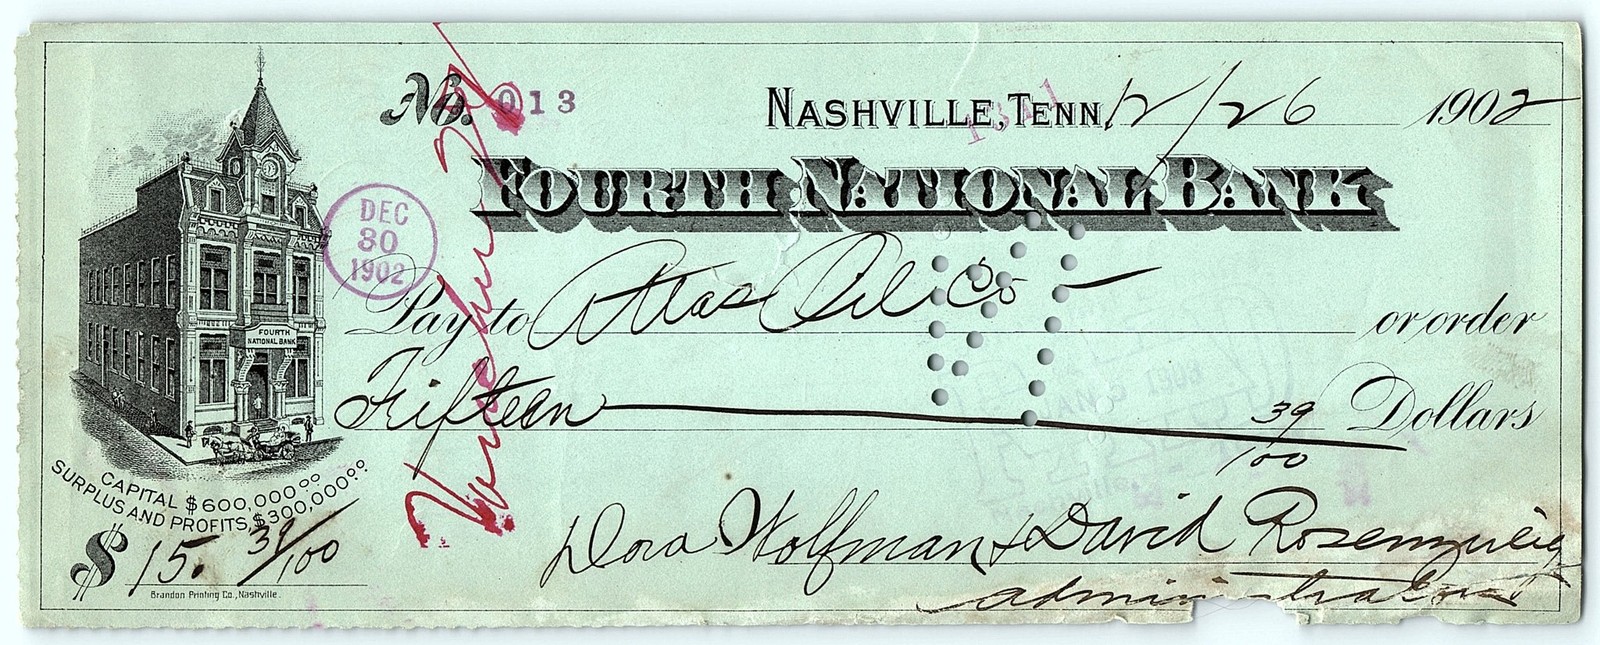 No. 013
NASHVILLE, TENN. 12/26 1902
1341
FOURTH NATIONAL BANK
DEC
30
1902
Pay to Atlas Oil Co or order
Fifteen 39/100 Dollars
FOURTH
NATIONAL BANK
CAPITAL $600,000.00
SURPLUS AND PROFITS, $300,000.00
$15. 39/100
Dora Wolfman & David Rosenzweig
administrators
Brandon Printing Co., Nashville.